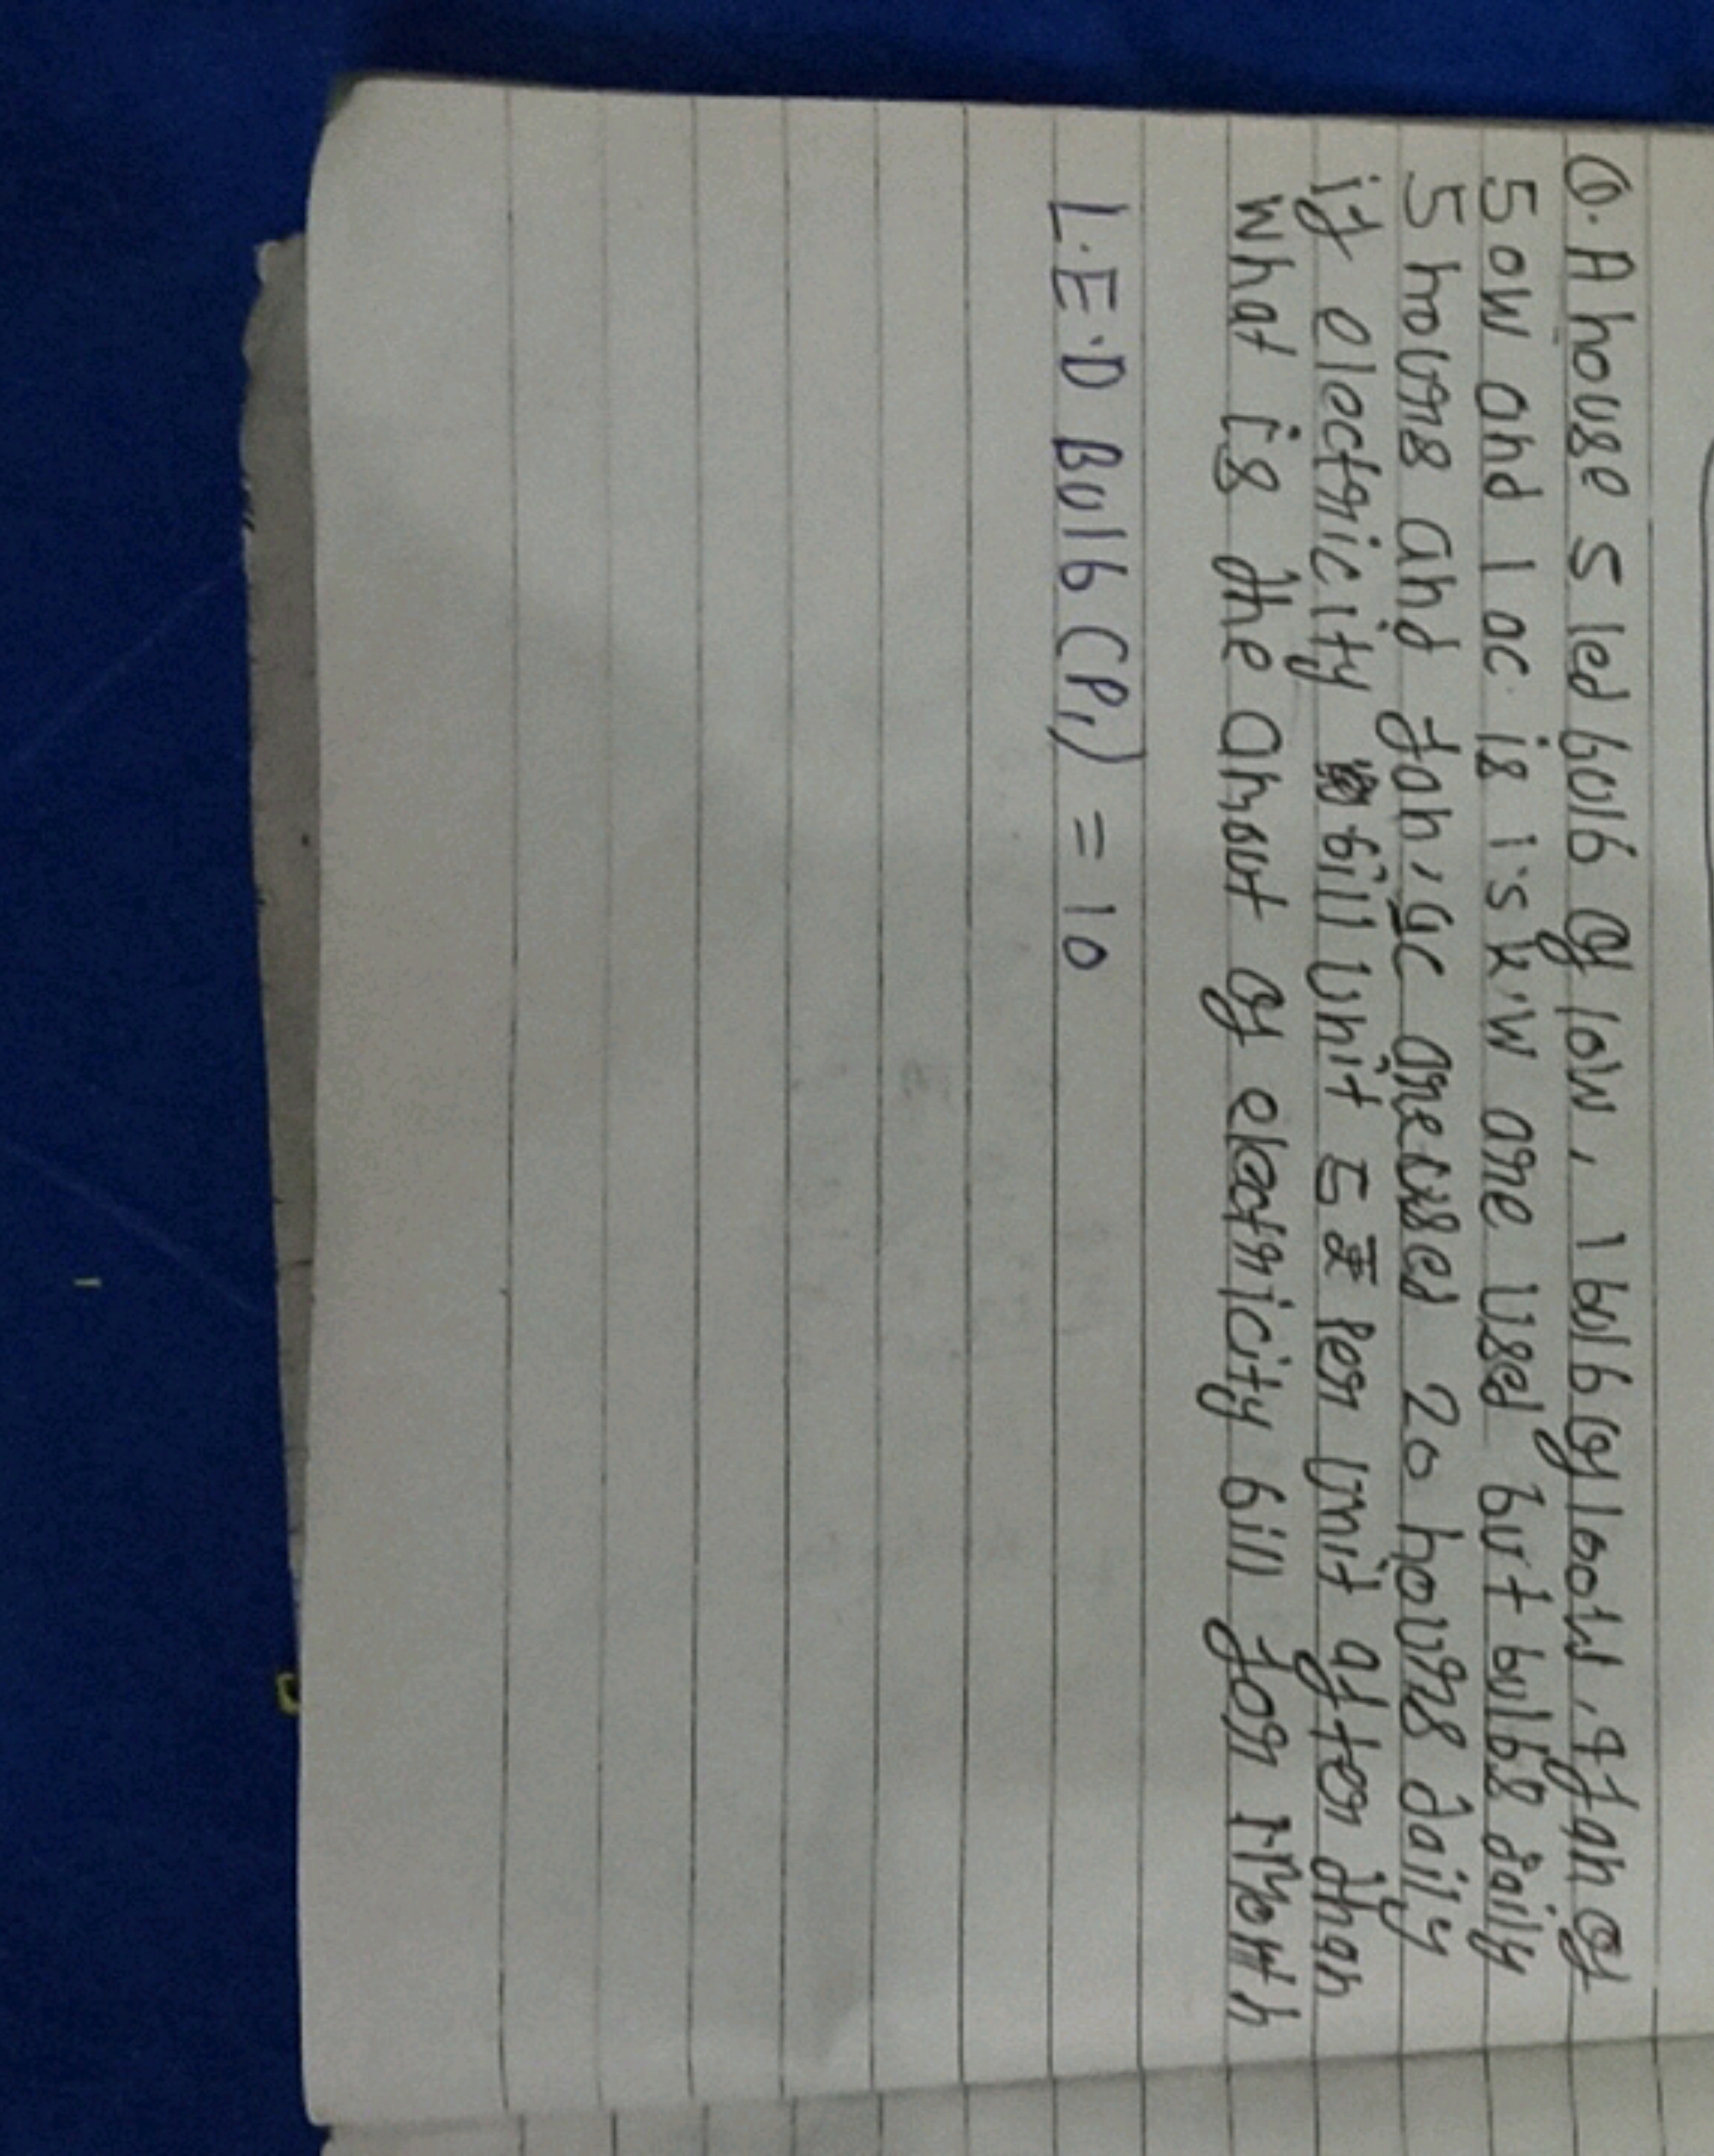 Q. A house 5 led bulb of 10W, 1 bulb of 100W, 4 fan of
50W and 1 ac is 1.5 k.W are used but bulbs daily
5 hours and fan, ac are used 20 hours daily
if electricity bill unit 5 ₹ Per unit after then
what is the amout of electricity bill for 1 Month
L.E.D Bulb (P1) = 10